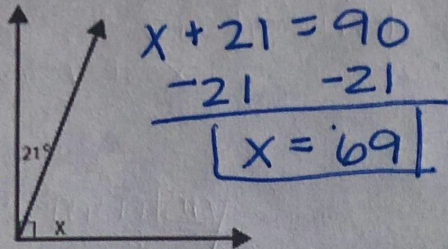 x + 21 = 90
-21 -21
x = 69
21°
x